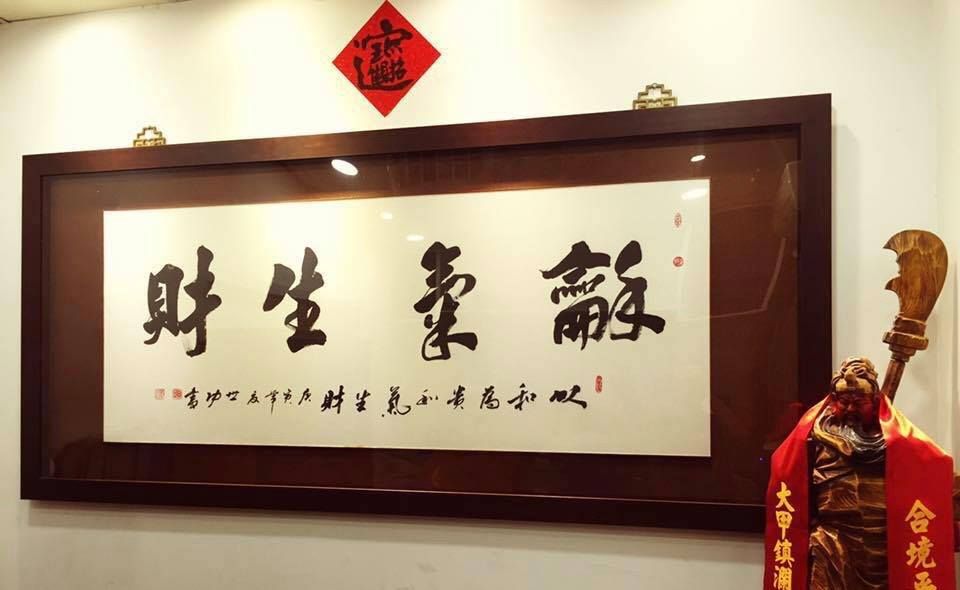 招財進寶
龢氣生財
以和為貴和氣生財庚寅年夏世功書
大甲鎮瀾
合境平